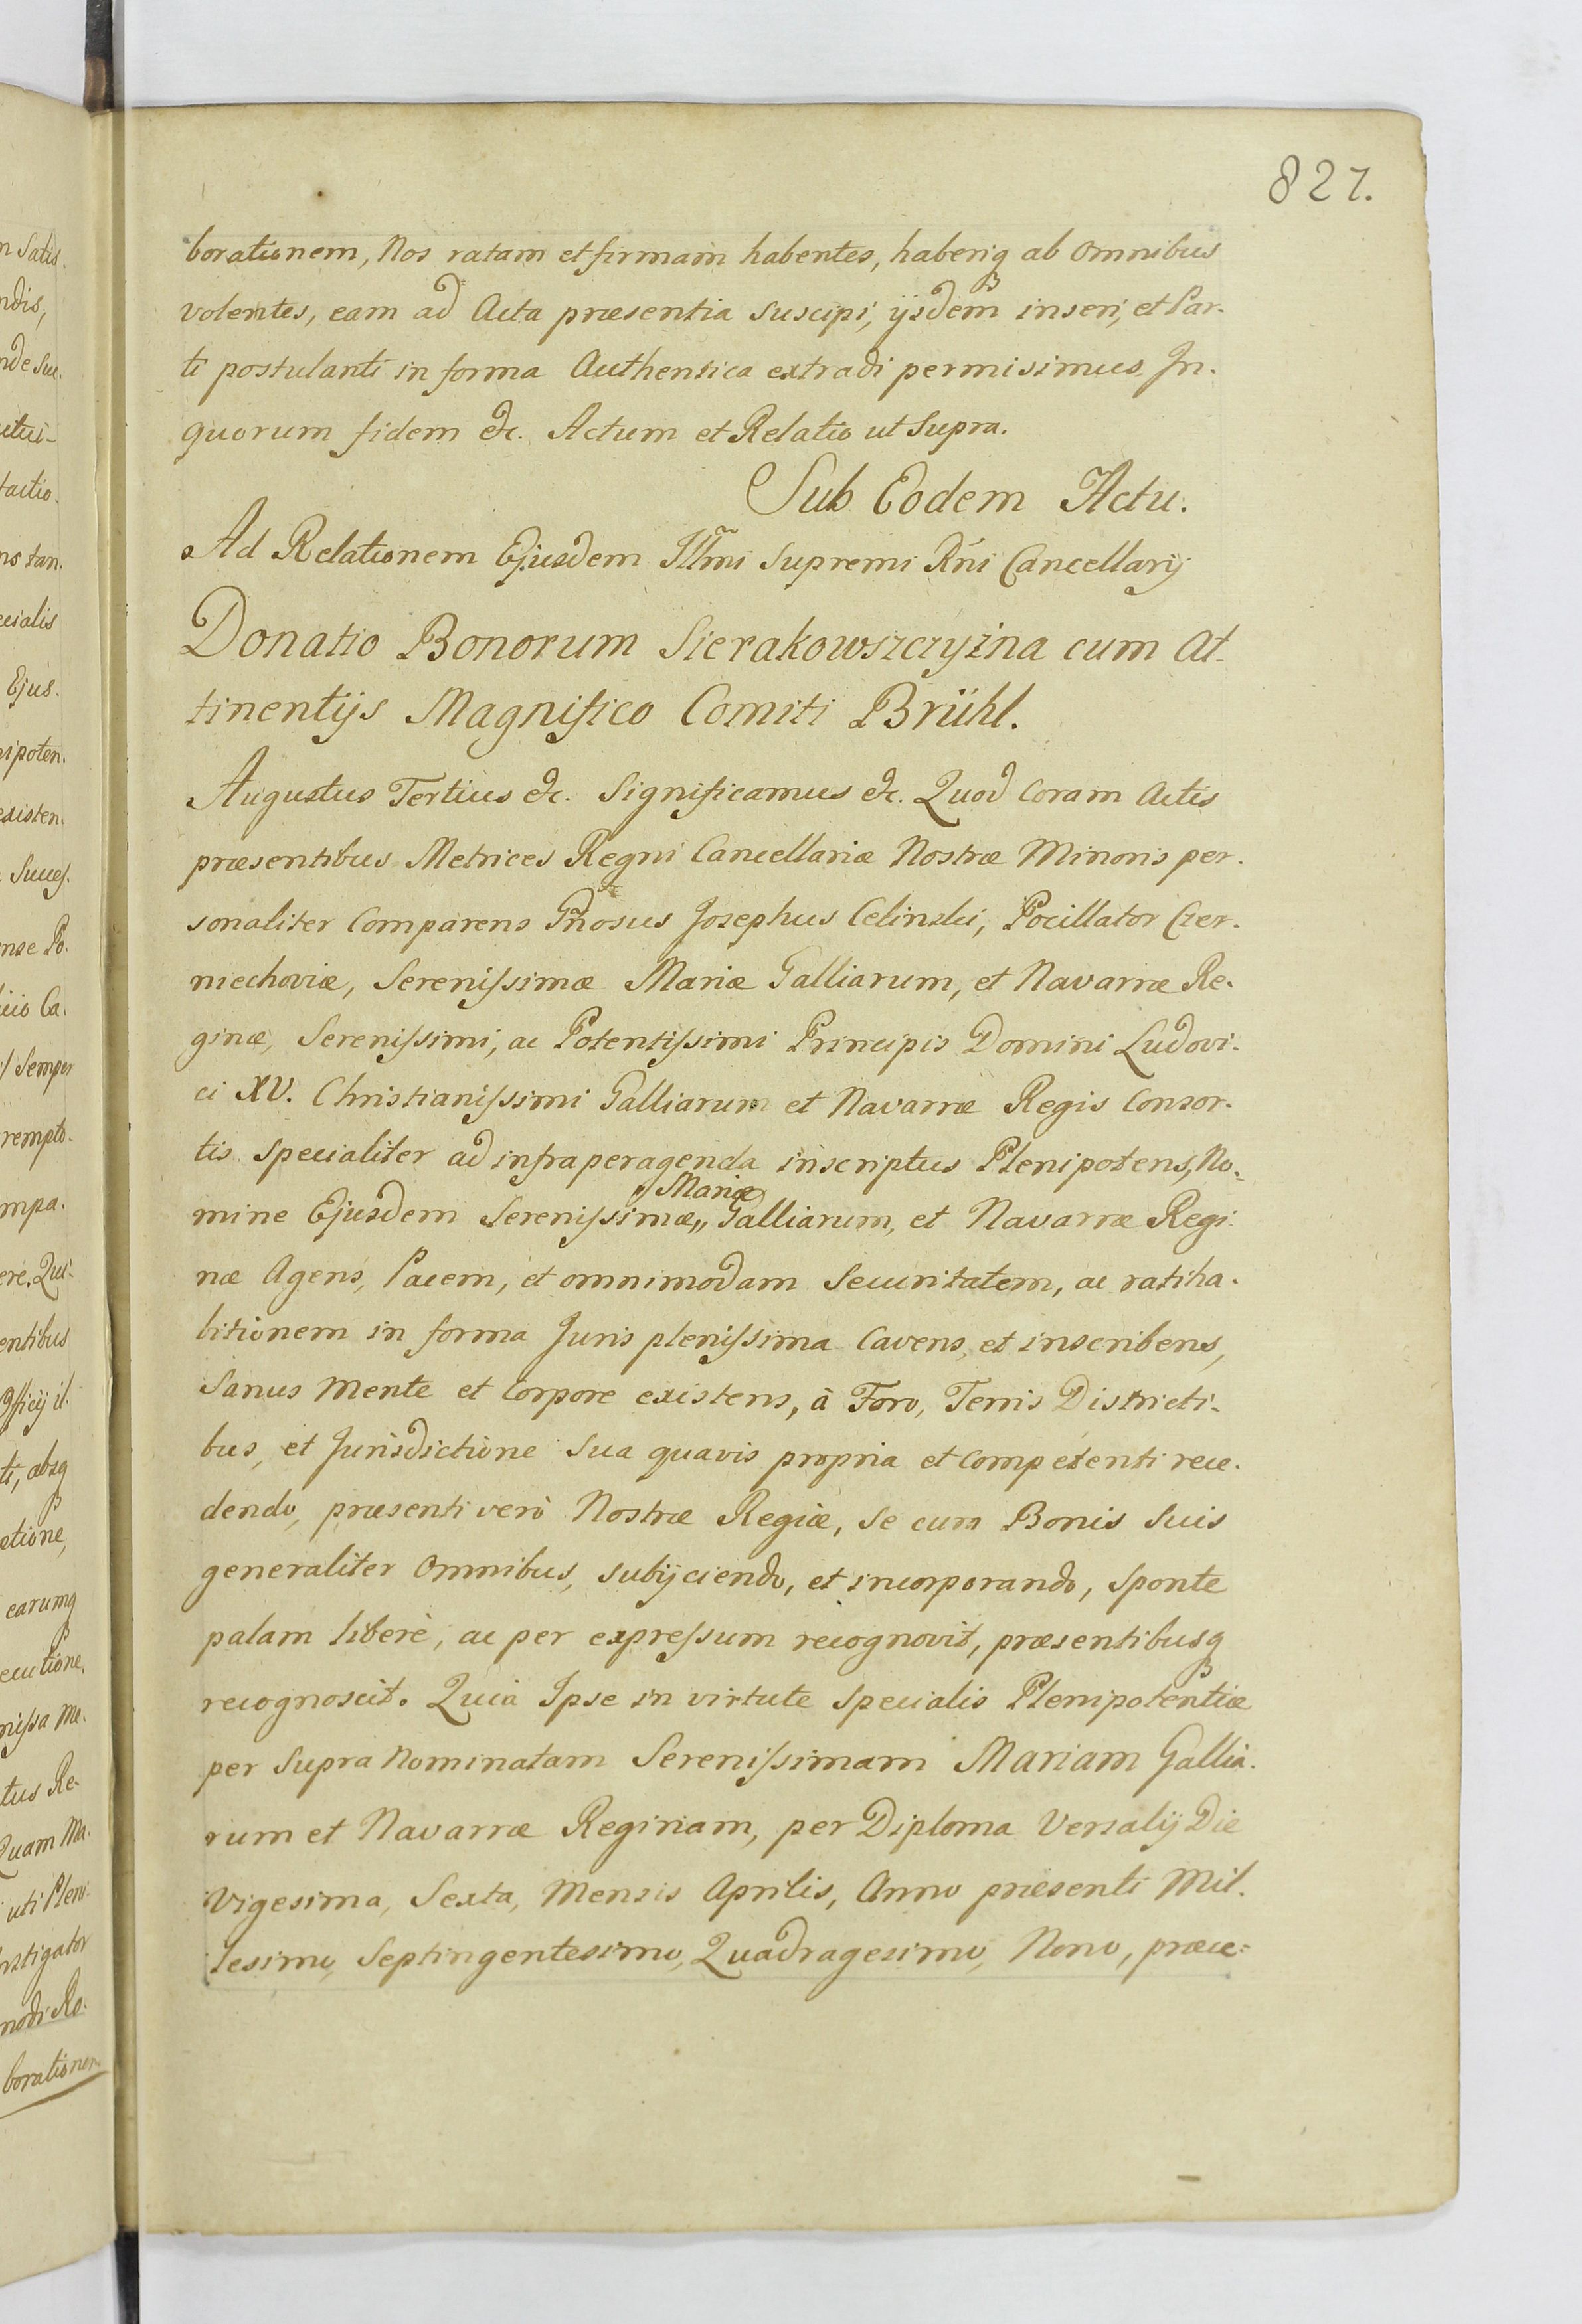 827.
borationem, Nos ratam et firmam habentes, haberiq ab omnibus
volentes, eam ad Acta præsentia suscipi, ijsdem inseri, et Par-
ti postulanti in forma Authentica extradi permisimus. In-
quorum fidem &c. Actum et Relatio ut Supra.
Sub Eodem Actu.
Ad Relationem Ejusdem Illm̃i Supremi Rńi Cancellarij
Donatio Bonorum Sierakowszczyzna cum At-
tinentijs Magnifico Comiti Brühl.
Augustus Tertius &c. Significamus &c. Quod Coram Actis
præsentibus Metrices Regni Cancellariæ Nostræ Minoris per-
sonaliter Comparens Gñosus Josephus Celinski, Pocillator Czer-
niechoviæ, Serenissimæ Mariæ Galliarum, et Navarræ Re-
ginæ, Serenissimi, ac Potentissimi Principis Domini Ludovi-
ci XV. Christianissimi Galliarum et Navarræ Regis Consor-
tis specialiter ad infraperagenda inscriptus Plenipotens, No-
mine Ejusdem Serenissimæ,, ,,Mariæ Galliarum, et Navarræ Regi-
næ Agens, Pacem, et omnimodam Securitatem, ac ratiha-
bitionem in forma Juris plenissima Cavens, et inscribens,
Sanus Mente et Corpore existens, à Foro, Terris Districti-
bus, et Jurisdictione Sua quavis propria et Competenti rece-
dendo, præsenti verò Nostræ Regiæ, Se cum Bonis Suis
generaliter Omnibus, subijciendo, et incorporando, Sponte
palam liberè, ac per expressum recognovit, præsentibusq
recognoscit. Quia Ipse in virtute Specialis Plenipotentiæ
per Supra Nominatam Serenissimam Mariam Gallia-
rum et Navarræ Reginam, per Diploma Versalij Die
Vigesima, Sexta, Mensis Aprilis, Anno præsenti Mil-
lesimo, Septingentesimo, Quadragesimo, Nono, præce-
n Satis.
ndis,
nde Suc.
Ejus.
ipoten.
existen.
Semper
rempto-
mpa-
entibus
earumq
tus Re-
Quam Ma-
uti Pleni-
nstigator
modi Ro-
borationem